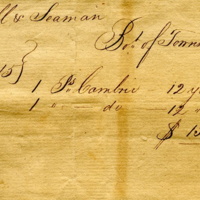 & Seaman
Bot. of Tenn
15 }
1 Ps. Cambric 12 y
1 " do 12
$ 15